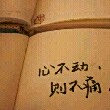 心不动，
则不痛